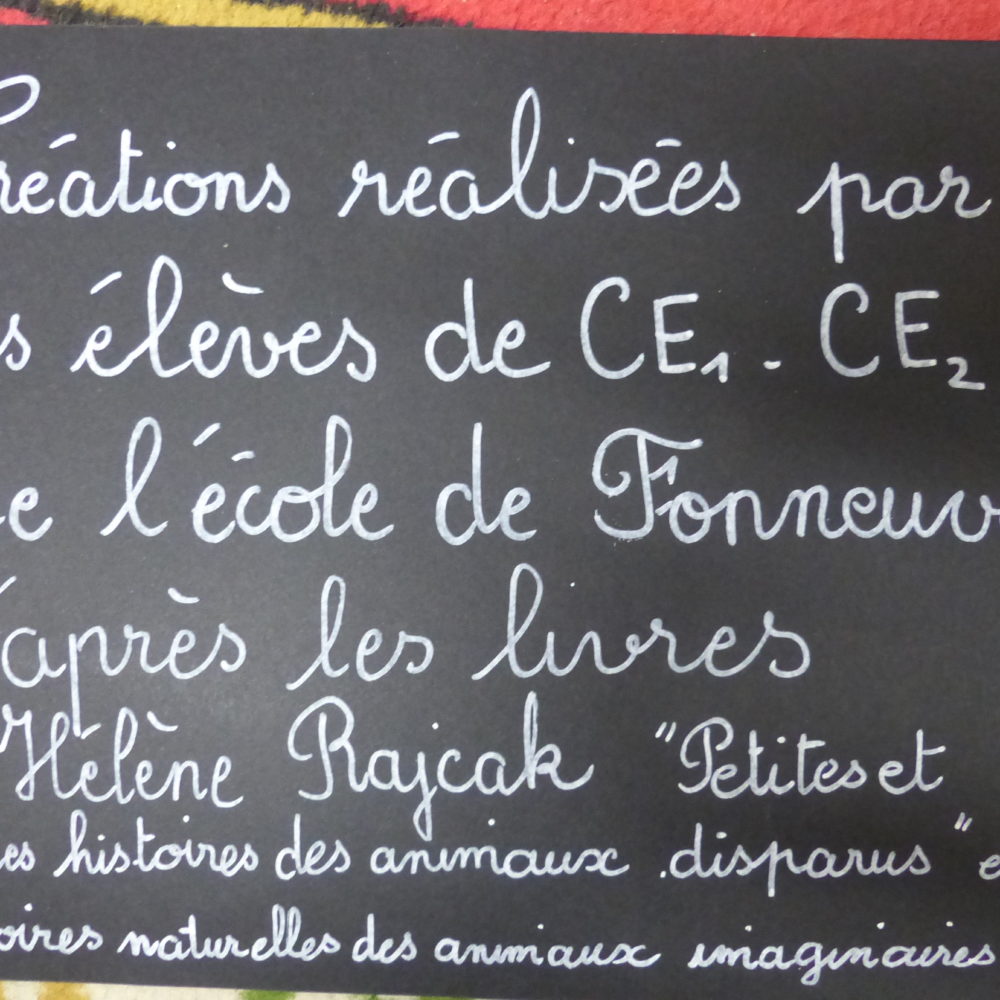 Créations réalisées par
s élèves de CE1 - CE2
e l'école de Fonneuv
'après les livres
Hélène Rajcak "Petites et
es histoires des animaux disparus" e
oires naturelles des animaux imaginaires